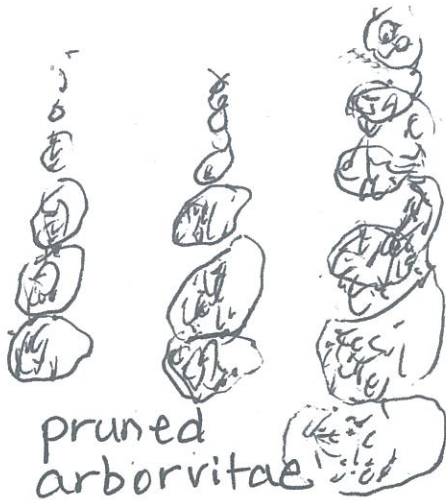 pruned
arborvitae